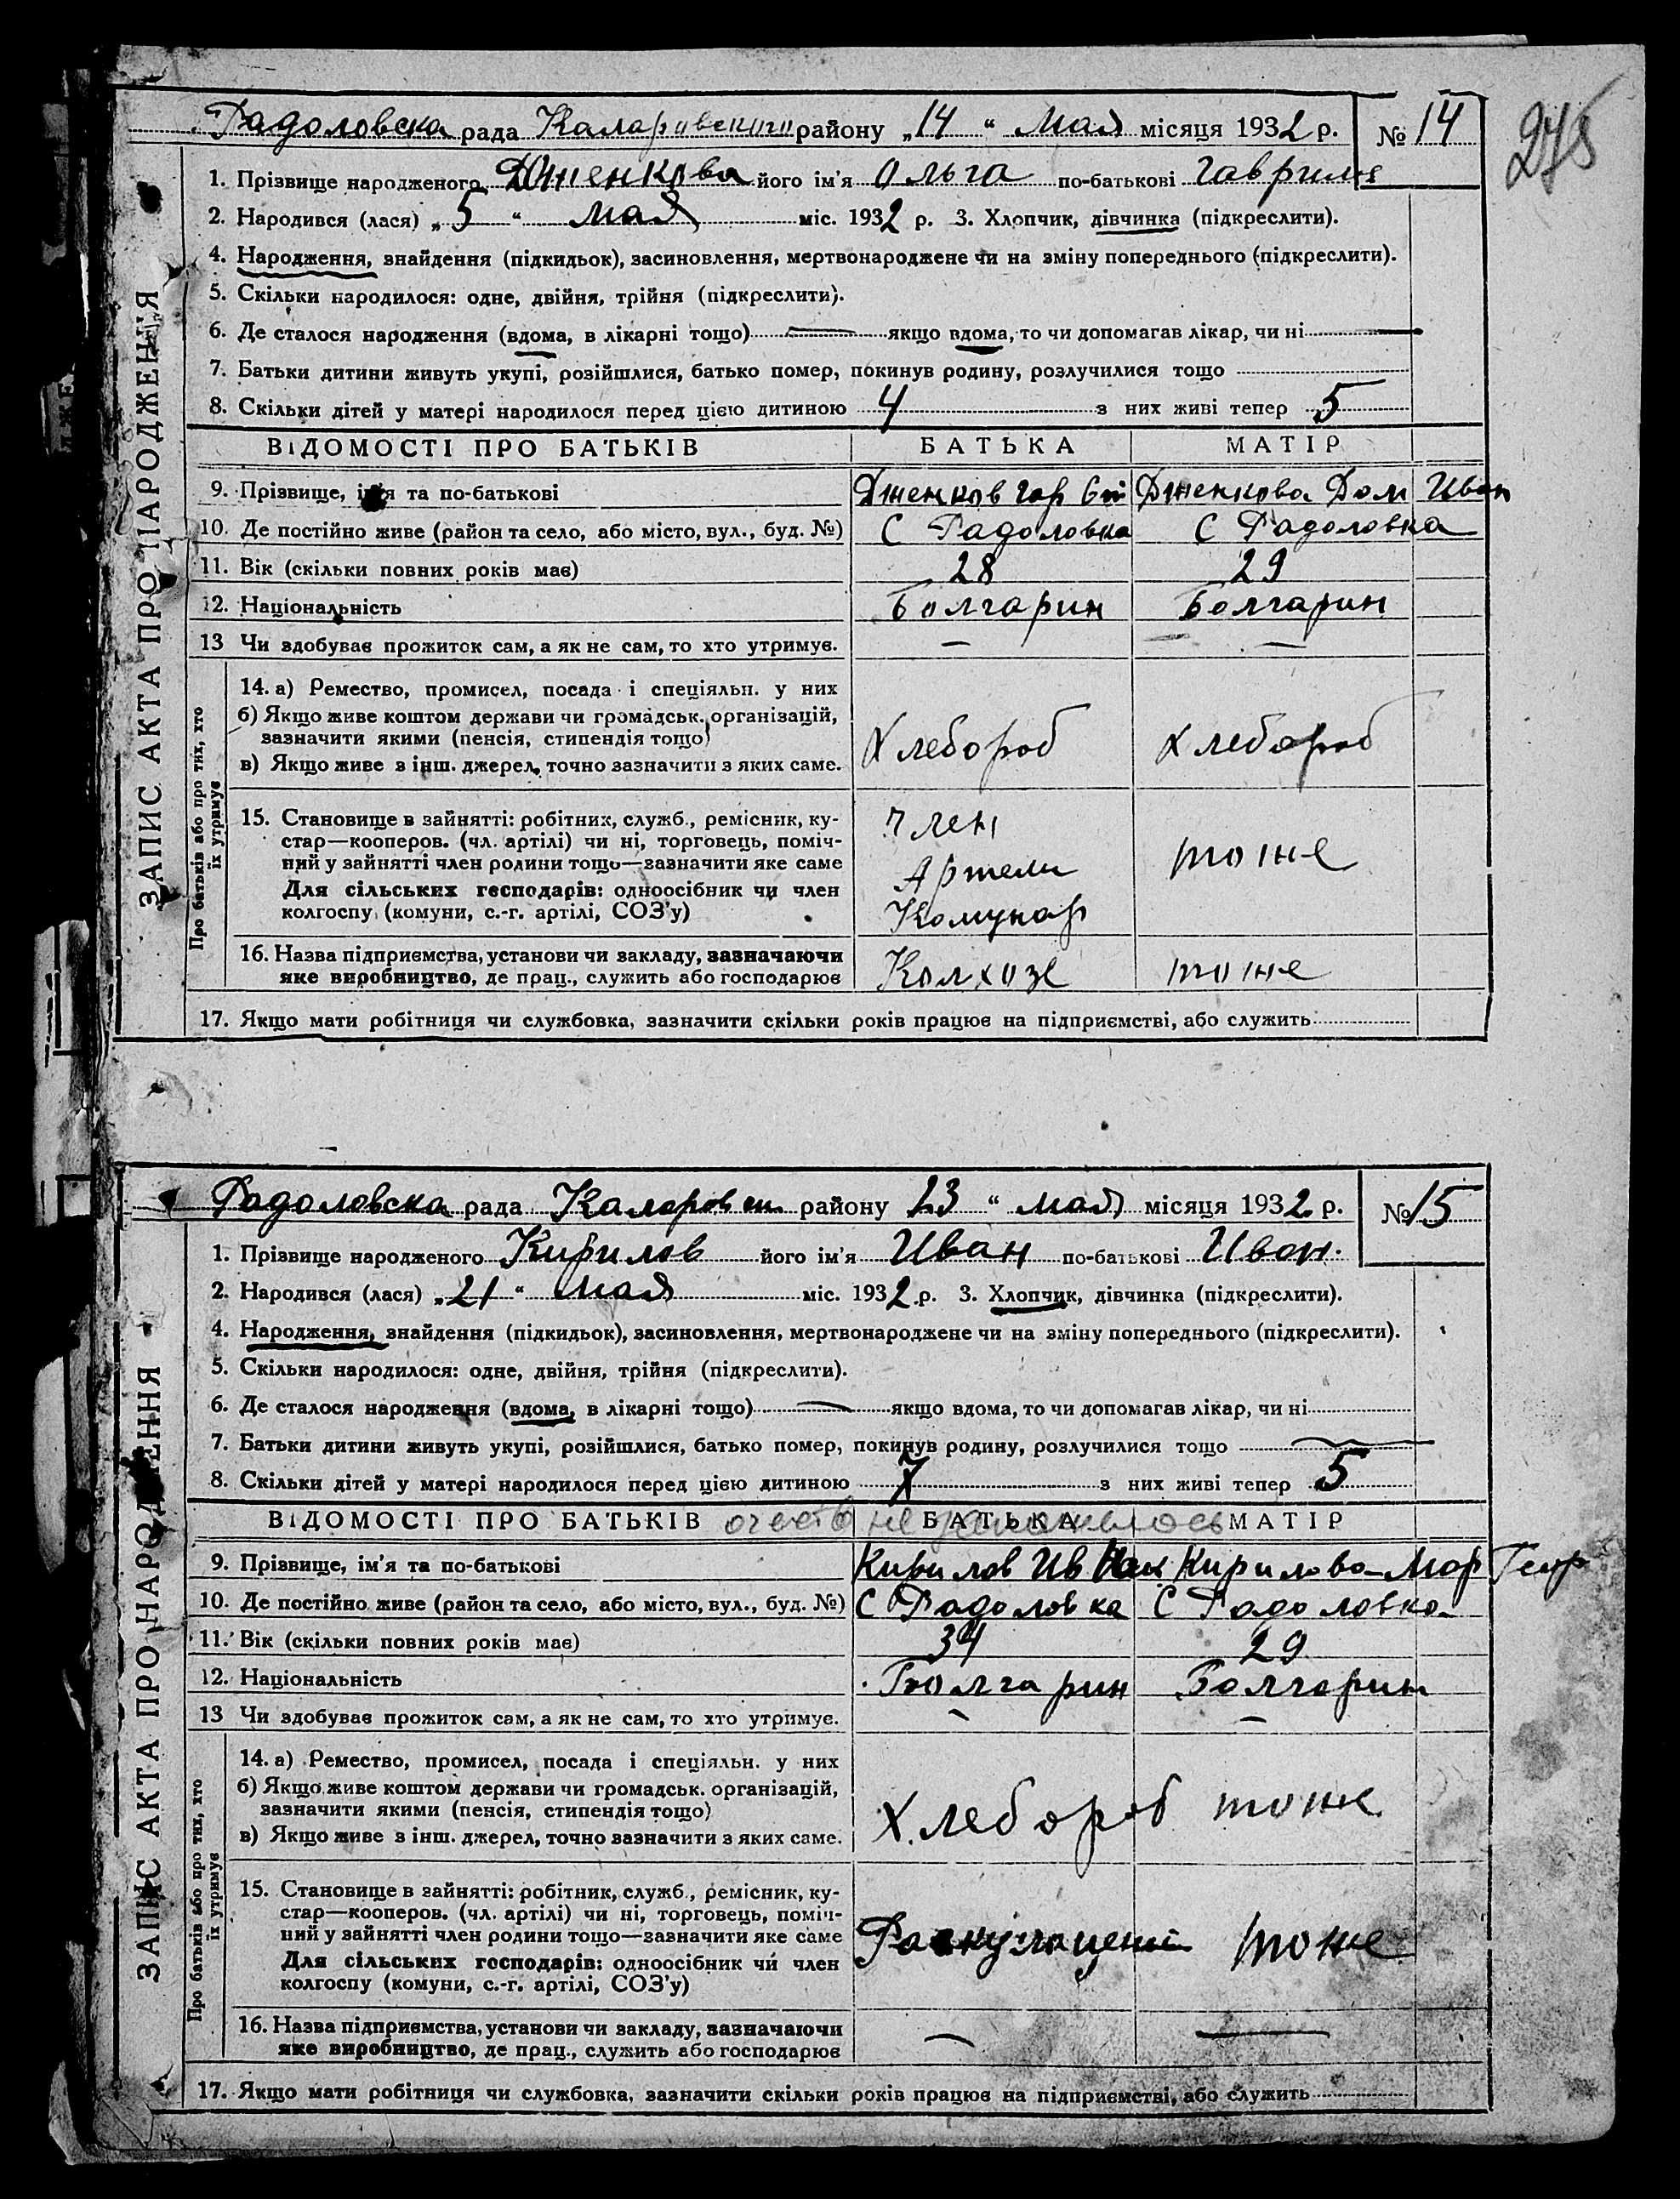 Радоловска рада Каларовского району „14 “ Мая місяця 1932 р. № 14
275
1. Прізвище народженого Дженкова його ім'я Ольга по-батькові Гаврил
2. Народився (лася) „ 5 “ мая міс. 1932 р. 3. Хлопчик, дівчинка (підкреслити).
4. Народження, знайдення (підкидьок), засиновлення, мертвонароджене чи на зміну попереднього (підкреслити).
5. Скільки народилося: одне, двійня, трійня (підкреслити).
6. Де сталося народження (вдома, в лікарні тощо) якщо вдома, то чи допомагав лікар, чи ні
7. Батьки дитини живуть укупі, розійшлися, батько помер, покинув родину, розлучилися тощо
8. Скільки дітей у матері народилося перед цією дитиною 4 з них живі тепер 5
ВІДОМОСТІ ПРО БАТЬКІВ БАТЬКА МАТІР
9. Прізвище, ім'я та по-батькові Дженков Гав Дженкова Дом Иван
10. Де постійно живе (район та село, або місто, вул., буд. №) С Радоловка С Радоловка
11. Вік (скільки повних років має) 28 29
12. Національність Болгарин Болгарин
13 Чи здобуває прожиток сам, а як не сам, то хто утримує. — —
14. а) Ремество, промисел, посада і спеціяльн. у них
б) Якщо живе коштом держави чи громадськ. організацій,
зазначити якими (пенсія, стипендія тощо)
Хлебороб Хлебороб
в) Якщо живе з інш. джерел, точно зазначити з яких саме.
15. Становище в зайнятті: робітник, служб., ремісник, ку-
стар—кооперов. (чл. артілі) чи ні, торговець, поміч-
ний у зайнятті член родини тощо—зазначити яке саме
Для сільських господарів: одноосібник чи член
колгоспу (комуни, с.-г. артілі, СОЗ'у)
Член
Артели
Комунар
тоже
16. Назва підприємства, установи чи закладу, зазначаючи
яке виробництво, де прац., служить або господарює
Колхозе тоже
17. Якщо мати робітниця чи службовка, зазначити скільки років працює на підприємстві, або служить
ЗАПИС АКТА ПРО НАРОДЖЕННЯ
Про батьків або про тих, хто
їх утримує
Радоловска рада Каларовск району 23 “ мая місяця 1932 р. № 15
1. Прізвище народженого Кирилов його ім'я Иван по-батькові Иван.
2. Народився (лася) „ 21 “ мая міс. 1932 р. 3. Хлопчик, дівчинка (підкреслити).
4. Народження, знайдення (підкидьок), засиновлення, мертвонароджене чи на зміну попереднього (підкреслити).
5. Скільки народилося: одне, двійня, трійня (підкреслити).
6. Де сталося народження (вдома, в лікарні тощо) якщо вдома, то чи допомагав лікар, чи ні
7. Батьки дитини живуть укупі, розійшлися, батько помер, покинув родину, розлучилися тощо
8. Скільки дітей у матері народилося перед цією дитиною 7 з них живі тепер 5
ВІДОМОСТІ ПРО БАТЬКІВ БАТЬКА МАТІР
9. Прізвище, ім'я та по-батькові Кирилов Ив Кирилова Мар Геор
10. Де постійно живе (район та село, або місто, вул., буд. №) С Радоловка С Радоловка
11. Вік (скільки повних років має) 34 29
12. Національність Болгарин Болгарин
13 Чи здобуває прожиток сам, а як не сам, то хто утримує. — —
14. а) Ремество, промисел, посада і спеціяльн. у них
б) Якщо живе коштом держави чи громадськ. організацій,
зазначити якими (пенсія, стипендія тощо)
Хлебороб тоже
в) Якщо живе з інш. джерел, точно зазначити з яких саме.
15. Становище в зайнятті: робітник, служб., ремісник, ку-
стар—кооперов. (чл. артілі) чи ні, торговець, поміч-
ний у зайнятті член родини тощо—зазначити яке саме
Для сільських господарів: одноосібник чи член
колгоспу (комуни, с.-г. артілі, СОЗ'у)
Раскулацений тоже
16. Назва підприємства, установи чи закладу, зазначаючи
яке виробництво, де прац., служить або господарює
— —
17. Якщо мати робітниця чи службовка, зазначити скільки років працює на підприємстві, або служить
ЗАПИС АКТА ПРО НАРОДЖЕННЯ
Про батьків або про тих, хто
їх утримує